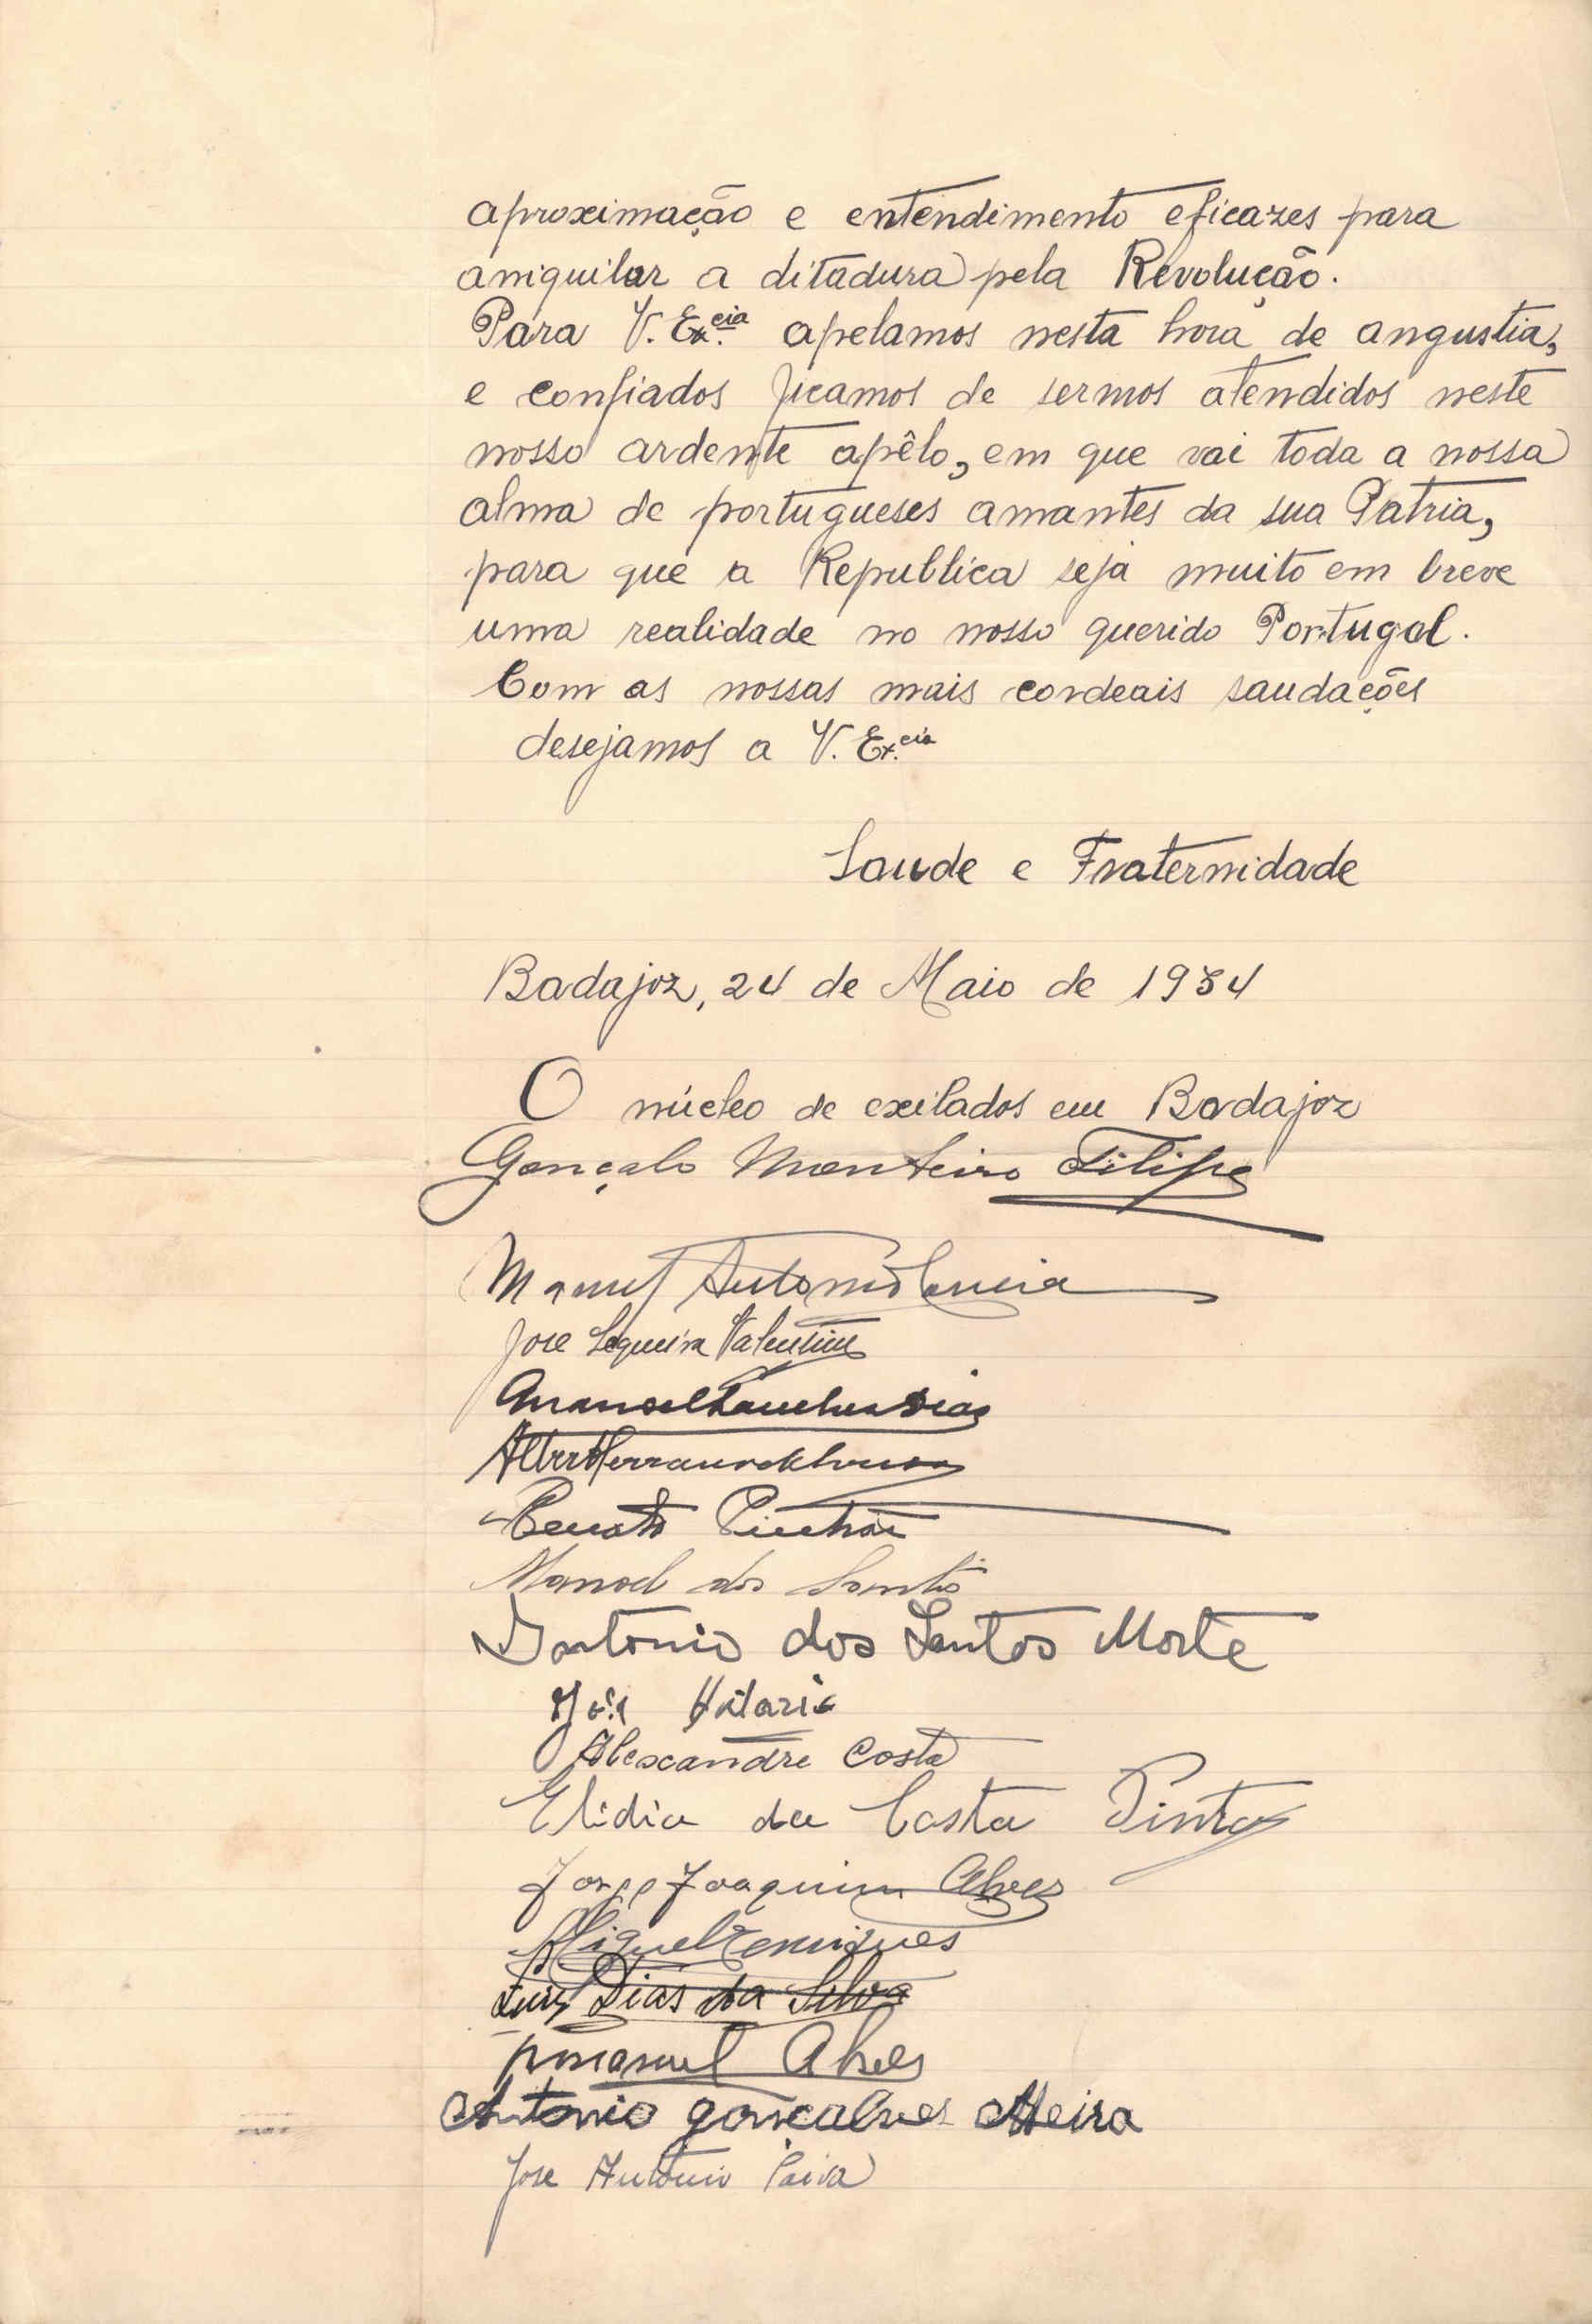 aproximação e entendimento eficazes para
aniquilar a ditadura pela Revolução.
Para V. Ex.cia apelamos nesta hora de angustia,
e confiados ficamos de sermos atendidos neste
nosso ardente apêlo, em que vai toda a nossa
alma de portugueses amantes da sua Patria,
para que a Republica seja muito em breve
uma realidade no nosso querido Portugal.
Com as nossas mais cordeais saudações
desejamos a V. Ex.cia
Saude e Fraternidade
Badajoz, 24 de Maio de 1934
O núcleo de exilados em Badajoz
Gonçalo Monteiro Filipe
Manuel Antonio
José Sequeira Valentim
Manoel Sanches Dias
Renato
Manoel dos Santos
Antonio dos Santos Morte
José Hilario
Alexandre Costa
Elidio da Costa Pinto
Jorge Joaquim Alves
Miguel Henriques
Luis Dias da Silva
Manuel Alves
Antonio gonçalves Meira
José Antonio Paiva